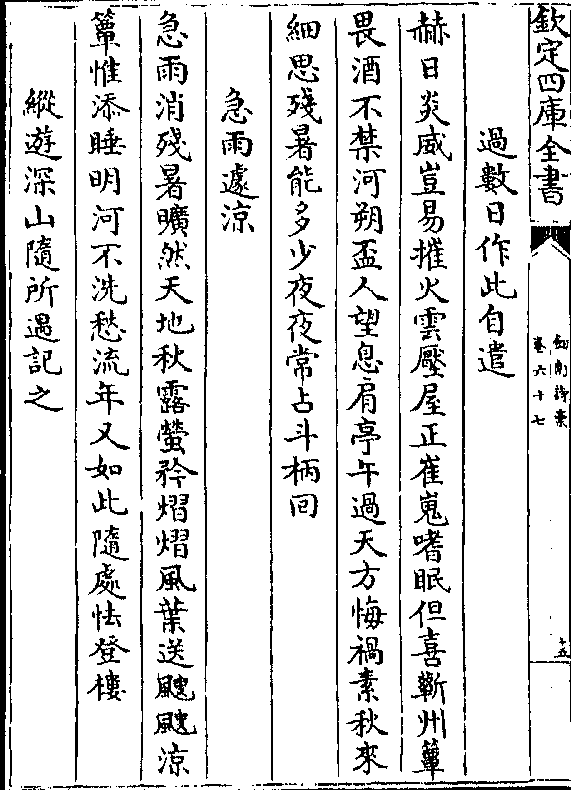 欽定四庫全書
劔南詩藁
卷六十七
十五
過數日作此自遣
赫日炎威豈易摧火雲壓屋正崔嵬嗜眠但喜蘄州簟
畏酒不禁河朔盃人望息肩亭午過天方悔禍素秋來
細思殘暑能多少夜夜常占斗柄回
急雨遽涼
急雨消殘暑曠然天地秋露螢矜熠熠風葉送颼颼涼
簟惟添睡明河不洗愁流年又如此隨處怯登樓
縱遊深山隨所遇記之